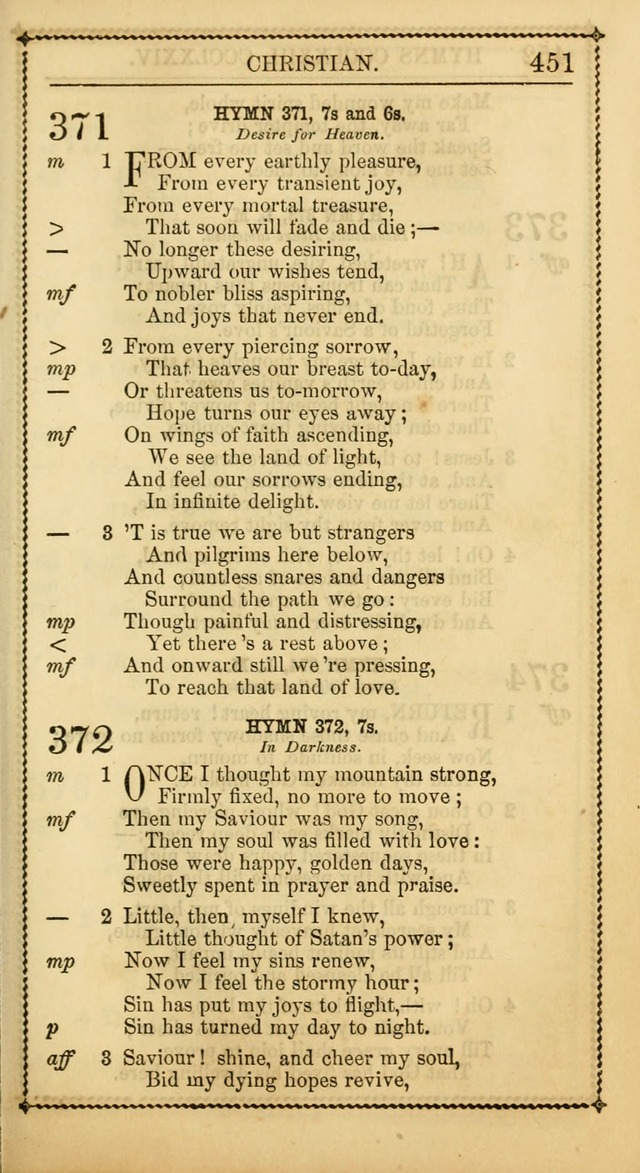 CHRISTIAN. 451
371 HYMN 371, 7s and 6s.
Desire for Heaven.
m 1 FROM every earthly pleasure,
From every transient joy,
From every mortal treasure,
> That soon will fade and die ;—
— No longer these desiring,
Upward our wishes tend,
mf To nobler bliss aspiring,
And joys that never end.
> 2 From every piercing sorrow,
mp That heaves our breast to-day,
— Or threatens us to-morrow,
Hope turns our eyes away ;
mf On wings of faith ascending,
We see the land of light,
And feel our sorrows ending,
In infinite delight.
— 3 'T is true we are but strangers
And pilgrims here below,
And countless snares and dangers
Surround the path we go :
mp Though painful and distressing,
< Yet there 's a rest above ;
mf And onward still we 're pressing,
To reach that land of love.
372 HYMN 372, 7s.
In Darkness.
m 1 ONCE I thought my mountain strong,
Firmly fixed, no more to move ;
mf Then my Saviour was my song,
Then my soul was filled with love :
Those were happy, golden days,
Sweetly spent in prayer and praise.
— 2 Little, then, myself I knew,
Little thought of Satan's power ;
mp Now I feel my sins renew,
Now I feel the stormy hour ;
Sin has put my joys to flight,—
p Sin has turned my day to night.
aff 3 Saviour ! shine, and cheer my soul,
Bid my dying hopes revive,